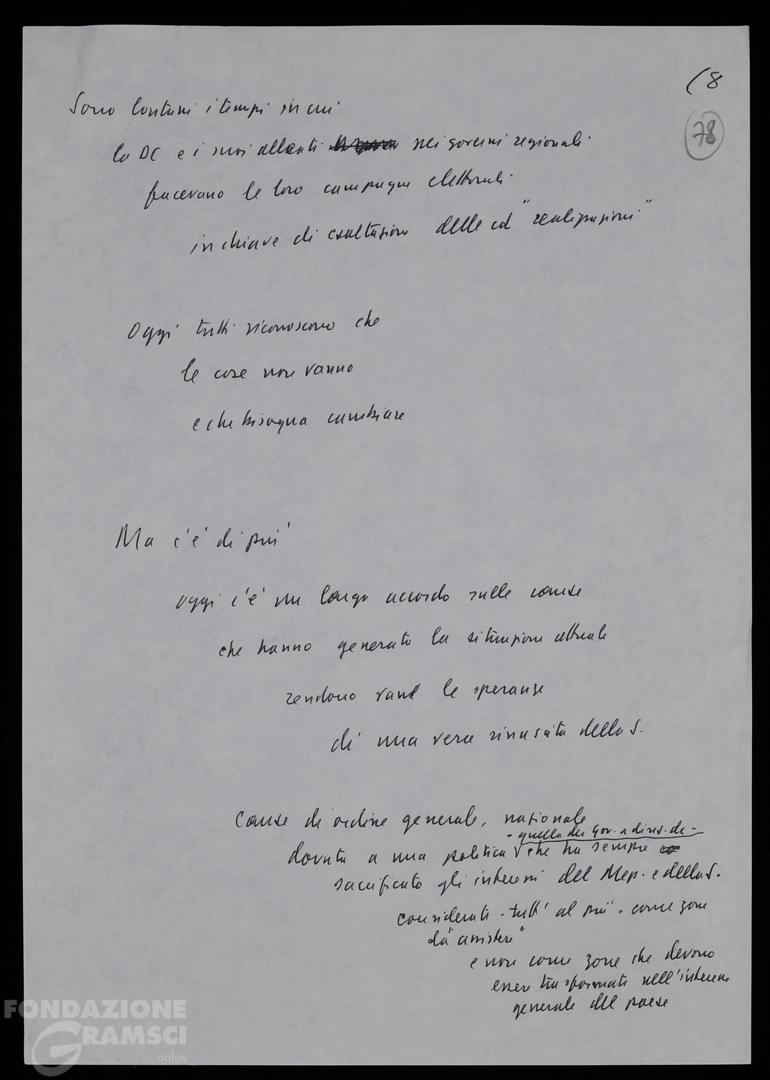 (8
78
Sono lontani i tempi in cui
la DC e i suoi alleati nei governi regionali
facevano le loro campagne elettorali
in chiave di esaltazione delle cd "realizzazioni"
Oggi tutti riconoscono che
le cose non vanno
e che bisogna cambiare
Ma c'è di più
oggi c'è un largo accordo sulle cause
che hanno generato la situazione attuale
rendono vane le speranze
di una vera rinascita della S.
Cause di ordine generale, nazionale
- quella dei Gov. a direz. dc -
dovuta a una politica che ha sempre
sacrificato gli interessi del Mez. e della S.
considerati - tutt'al più - come zone
da "assistere"
e non come zone che devono
essere trasformate nell'interesse
generale del paese
FONDAZIONE
GRAMSCI
onlus